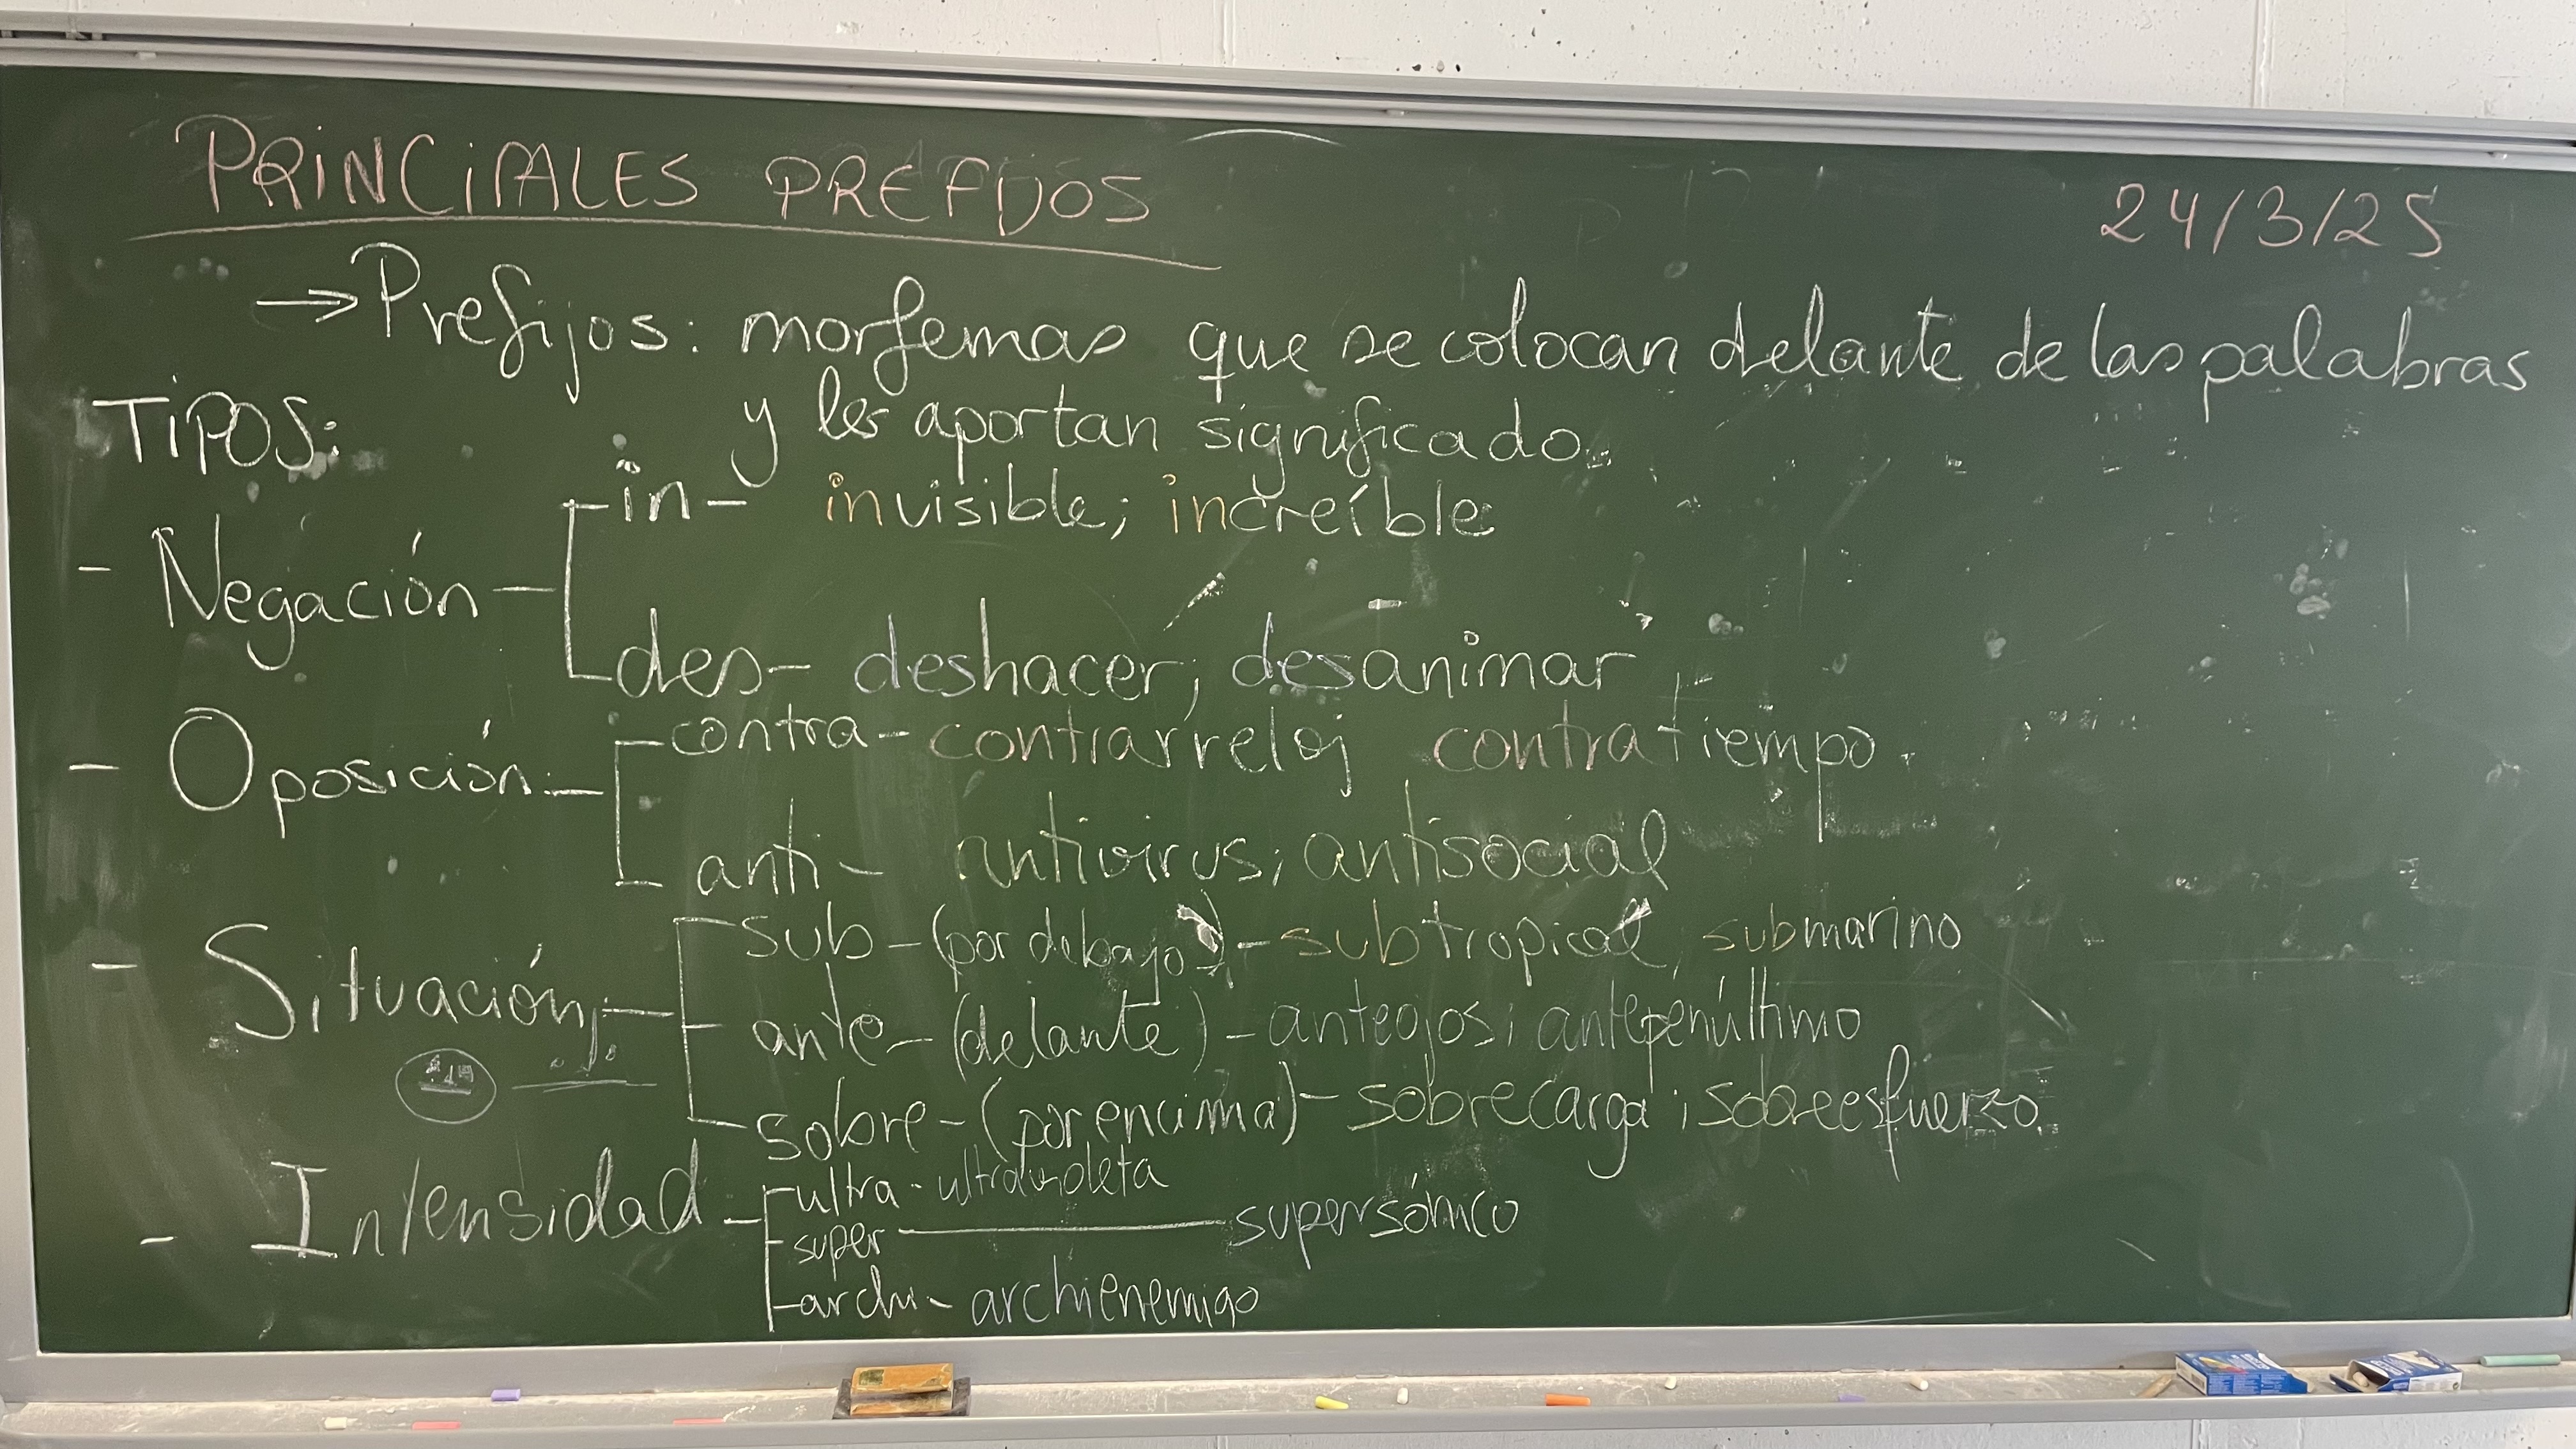 PRINCIPALES PREFIJOS 24/3/25
→ Prefijos: morfemas que se colocan delante de las palabras
y les aportan significado.
TIPOS:
in- invisible; increíble
- Negación
des- deshacer; desanimar
contra- contrarreloj contratiempo.
- Oposición:
anti- antivirus; antisocial
sub- (por debajo) - subtropical, submarino
- Situación:
ante- (delante) - anteojos; antepenúltimo
sobre- (por encima) - sobrecarga; sobreesfuerzo.
ultra- ultravioleta
- Intensidad
super supersónico
archi- archienemigo